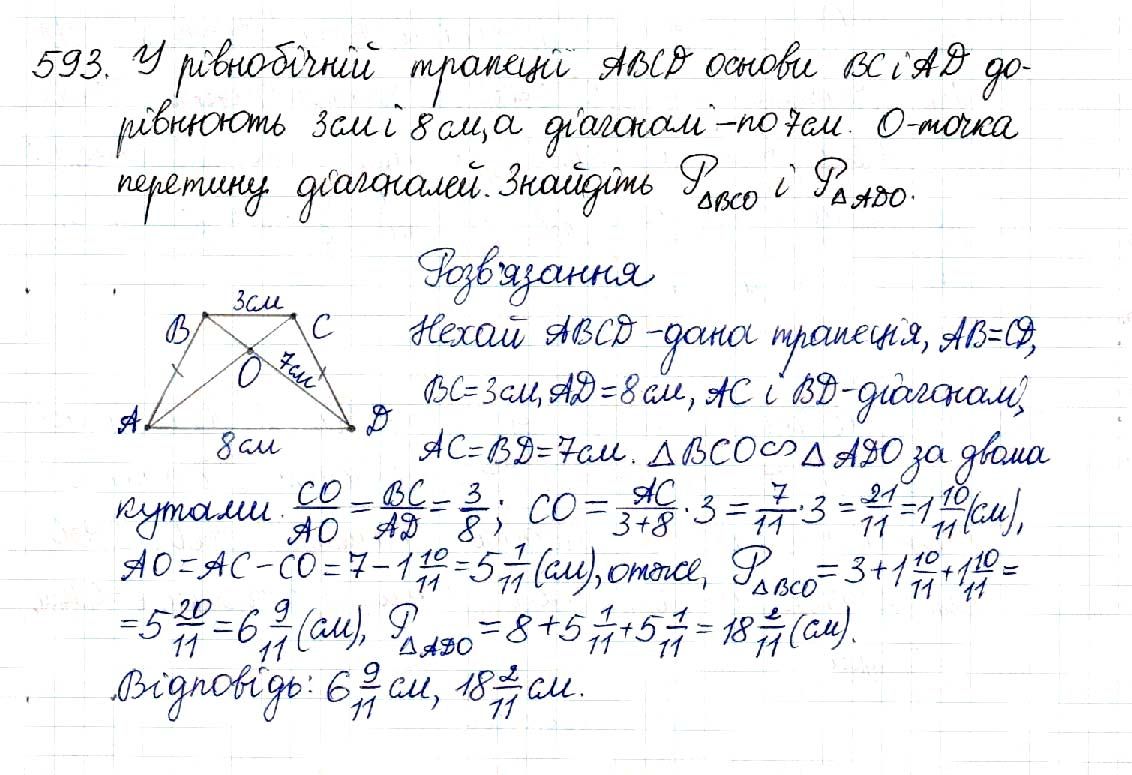 593. У рівнобічній трапеції ABCD основи BC і AD до-
рівнюють 3см і 8см, а діагоналі – по 7см. O – точка
перетину діагоналей. Знайдіть P△BCO і P△ADO.
Розв'язання
3см
B C
O 7см
A D
8см
Нехай ABCD – дана трапеція, AB=CD,
BC=3см, AD=8см, AC і BD – діагоналі,
AC=BD=7см. △BCO∽△ADO за двома
кутами. CO/AO = BC/AD = 3/8; CO = AC/(3+8) · 3 = 7/11 · 3 = 21/11 = 1 10/11 (см),
AO = AC – CO = 7 – 1 10/11 = 5 1/11 (см), отже, P△BCO = 3 + 1 10/11 + 1 10/11 =
= 5 20/11 = 6 9/11 (см), P△ADO = 8 + 5 1/11 + 5 1/11 = 18 2/11 (см).
Відповідь: 6 9/11 см, 18 2/11 см.